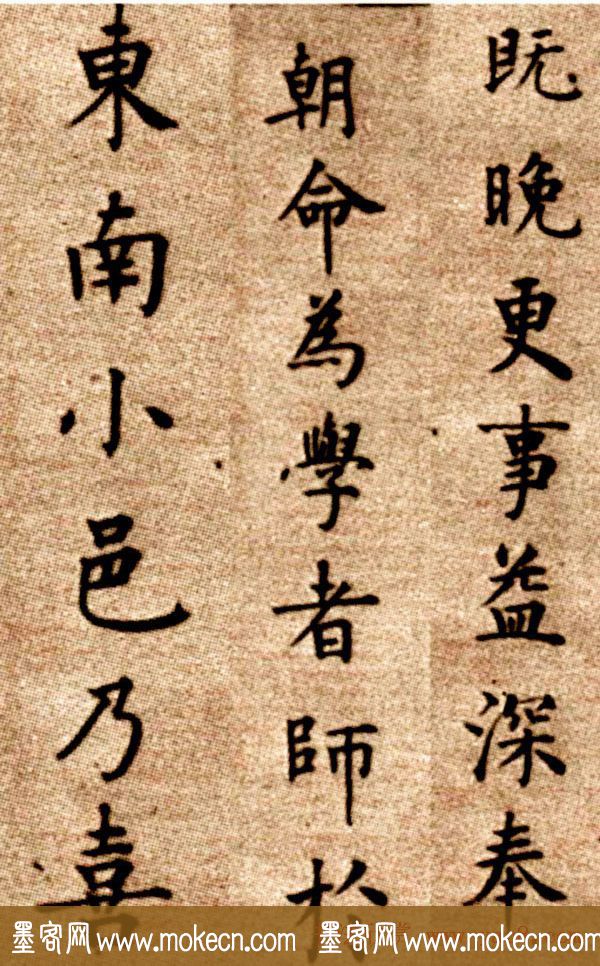 既晚更事益深奉
朝命為學者師於
東南小邑乃喜
墨客网 www.mokecn.com 墨客网 www.mokecn.com